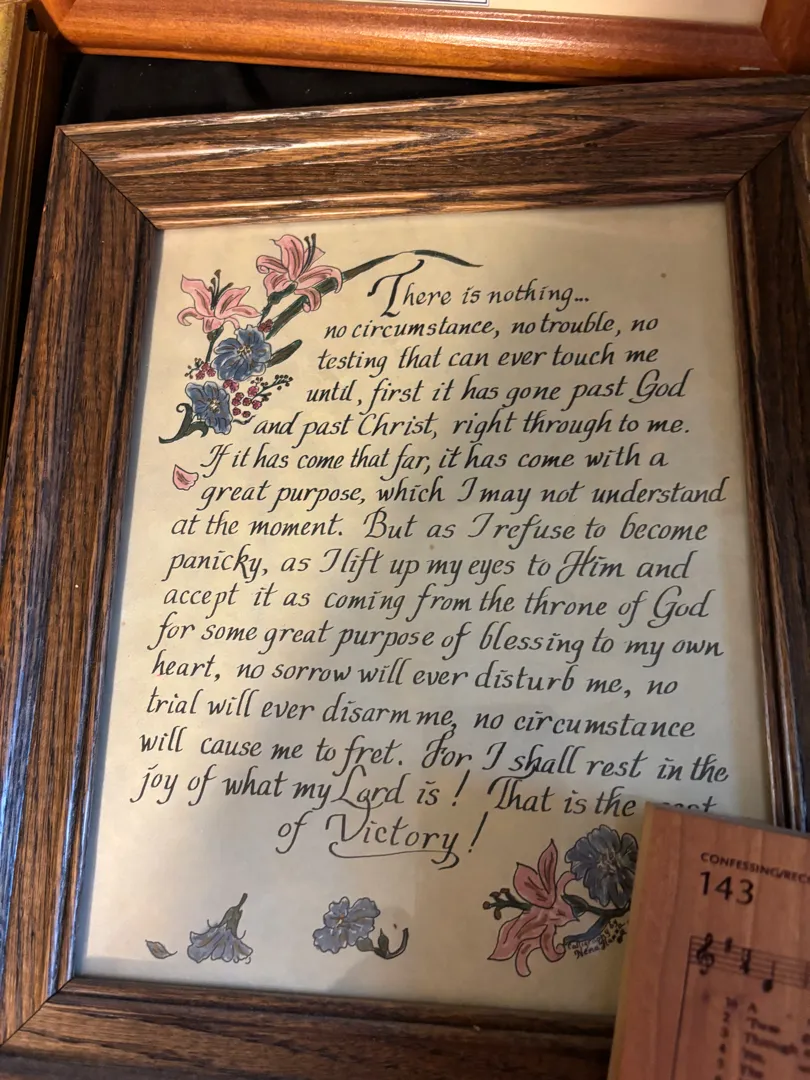 There is nothing...
no circumstance, no trouble, no
testing that can ever touch me
until, first it has gone past God
and past Christ, right through to me.
If it has come that far, it has come with a
great purpose, which I may not understand
at the moment. But as I refuse to become
panicky, as I lift up my eyes to Him and
accept it as coming from the throne of God
for some great purpose of blessing to my own
heart, no sorrow will ever disturb me, no
trial will ever disarm me, no circumstance
will cause me to fret. For I shall rest in the
joy of what my Lord is! That is the
of Victory!
CONFESSING/
143